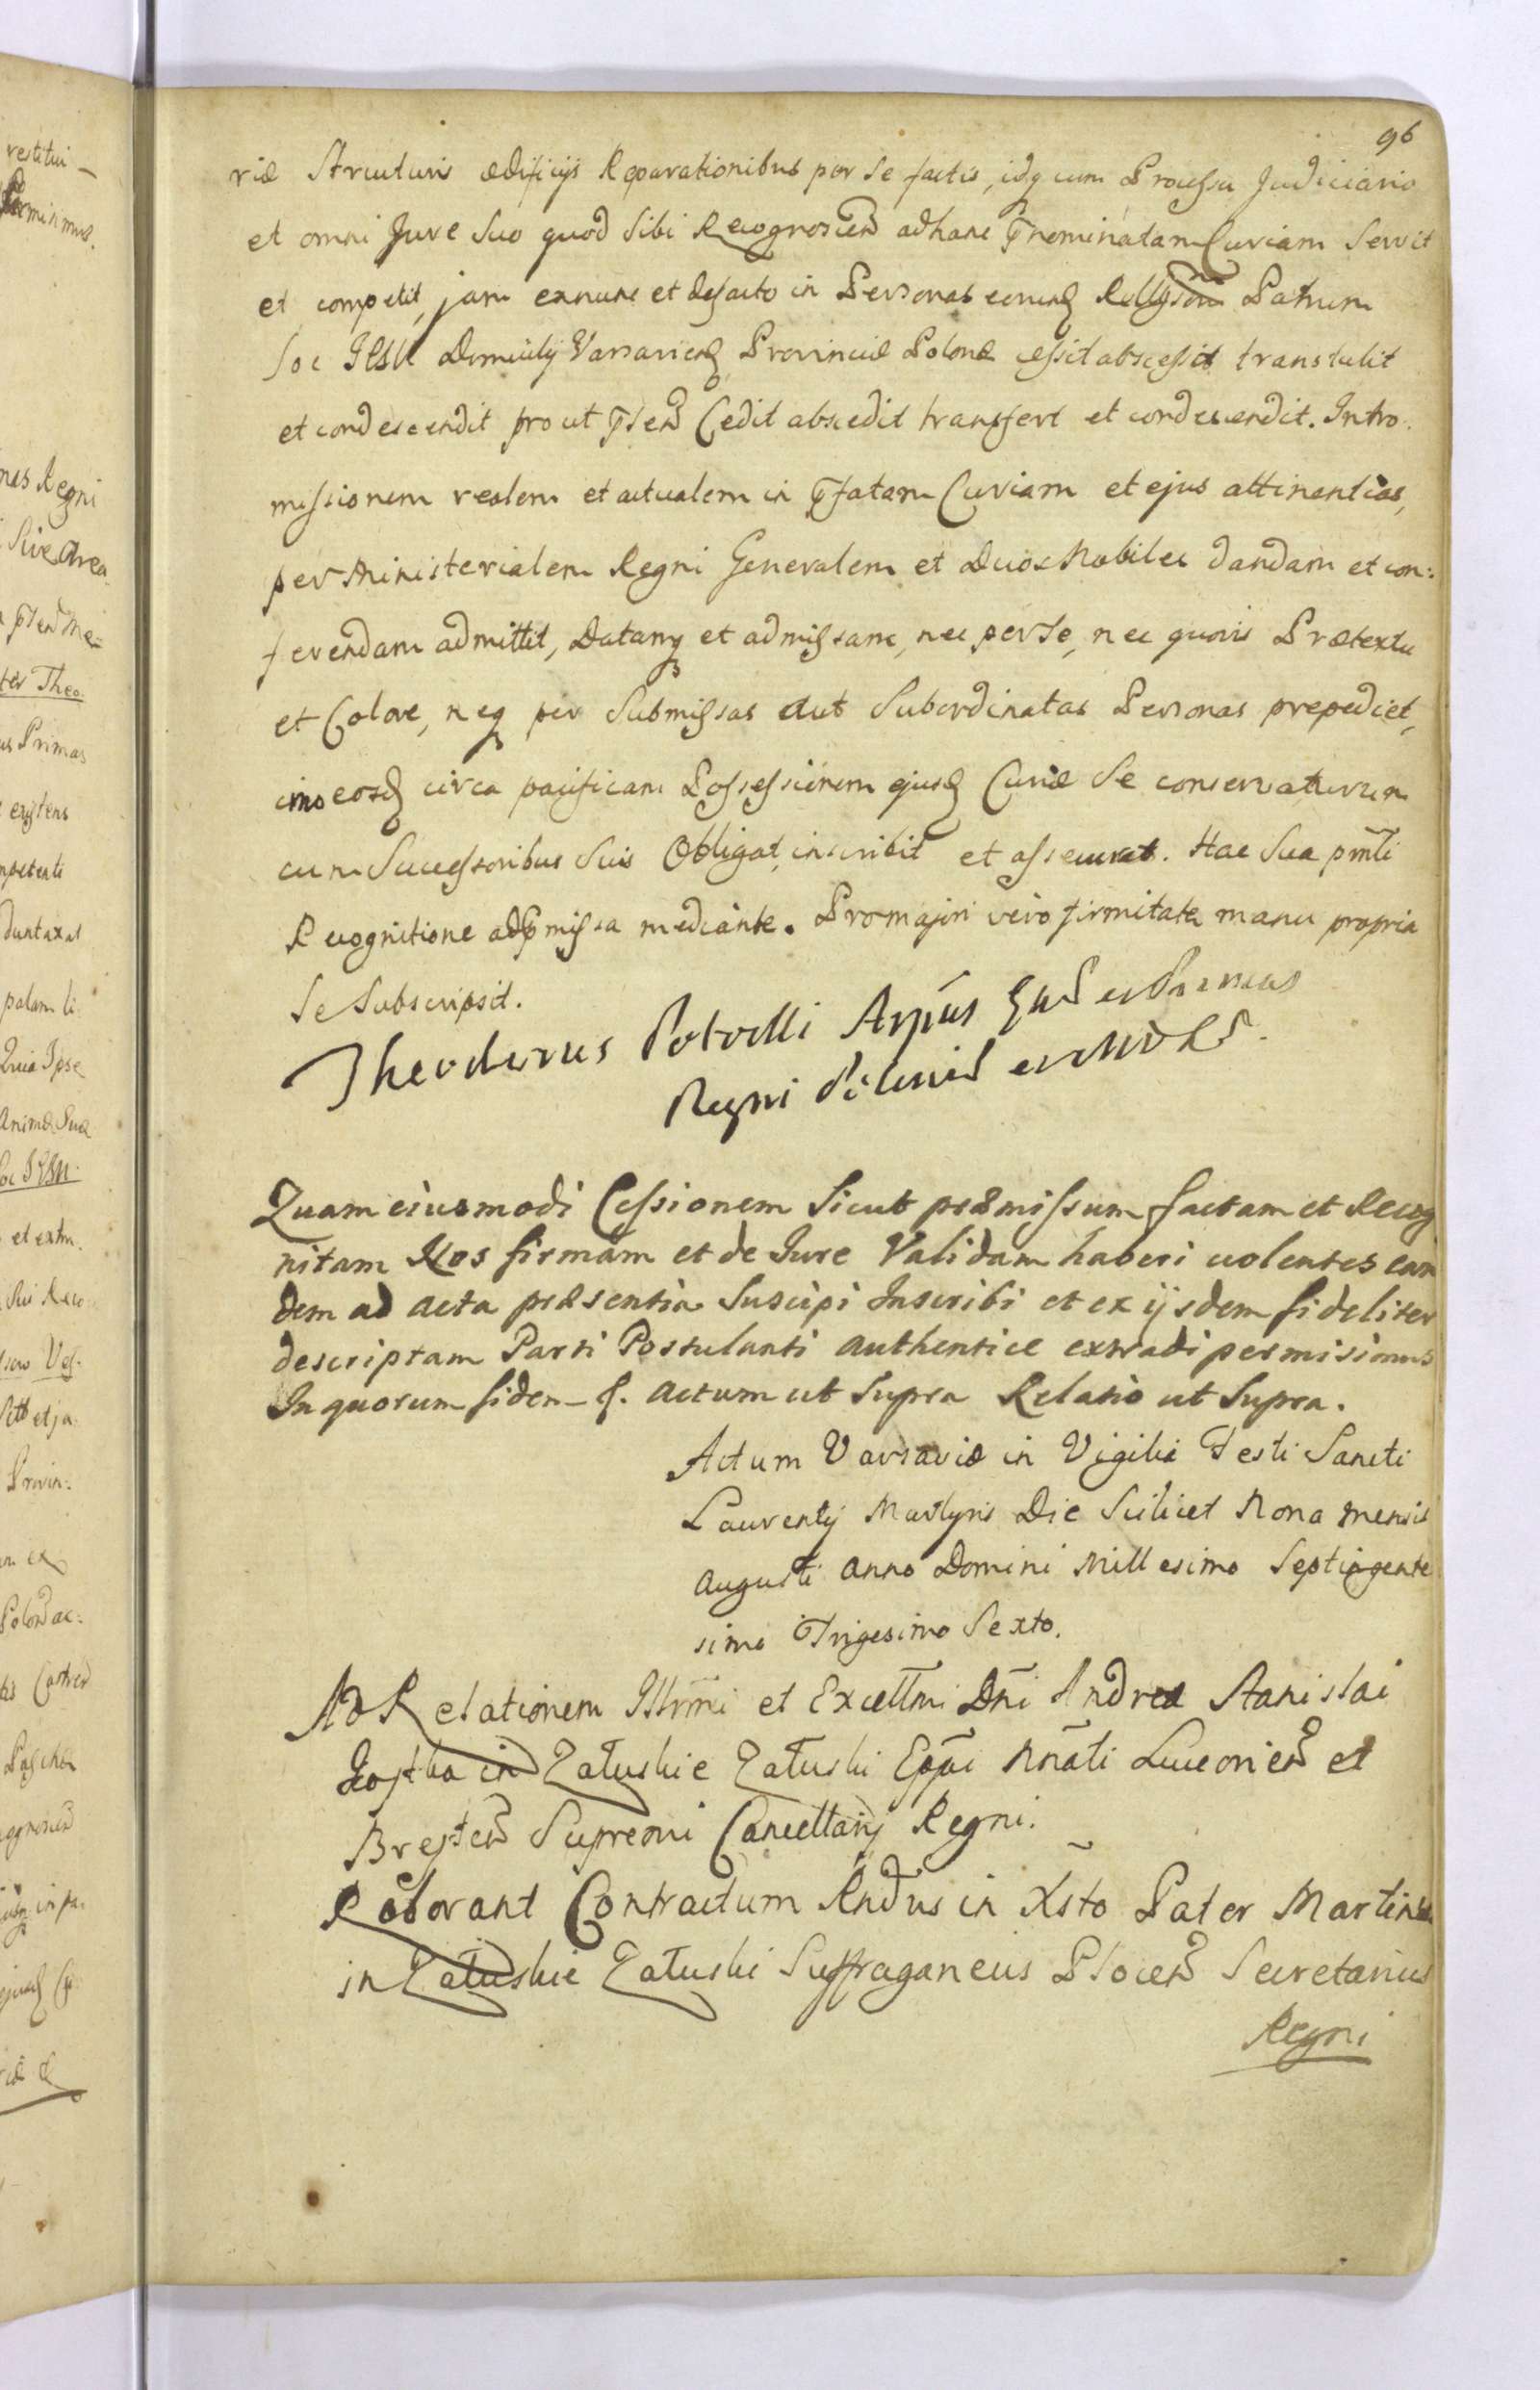 96
riæ Structuris ædificijs Reparationibus per se factis, idq cum Processu Judiciario
et omni Jure Suo quod Sibi Recognoscen ad hanc pnominatam Curiam Servit
et competit, jam exnunc et defacto in Personas eorund Patrum
Soc IESU Domicilij Varsavien Provinciæ Polonæ cessit abscessit transtulit
et condescendit prout pnten Cedit abscedit transfert et condescendit. Intro-
missionem realem et actualem in pfatam Curiam et ejus attinentias,
per Ministerialem Regni Generalem et Duos Nobiles dandam et con:
ferendam admittit, Datamq et admissam, nec per Se, nec quovis Prætextu
et Colore, neq per Submissas aut Subordinatas Personas prepediet,
imo eosd circa pacificam Possessionem ejusd Curiæ Se conservaturum
cum Successoribus Suis Obligat, inscribit et assecurat. Hac Sua pnti
Recognitione ad pmissa mediante. Pro majori vero firmitate manu propria
Se Subscripsit.
Theodorus Potocki Arpus Gnes et Primas
Regni Poloniæ et MDL
Quam eiusmodi Cessionem Sicut præmissum factam et Recog
nitam Nos firmam et de Iure Validam haberi volentes ean
dem ad acta præsentia Suscipi Inscribi et ex ijsdem fideliter
descriptam Parti Postulanti authentice extradi permisimus
In quorum fidem actum ut Supra Relatio ut Supra.
Actum Varsaviæ in Vigilia Festi Sancti
Laurentij Martyris Die Scilicet Nona mensis
Augusti Anno Domini Millesimo Septingente
simo Trigesimo Sexto.
Ad Relationem Illrmi et Excellmi Dni Andreæ Stanislai
Kostka in Załuskie Załuski Eppi Nnati Luceorien et
Bresten Supremi Cancellarij Regni.
Roborant Contractum Rndus in Xsto Pater Martinus
in Załuskie Załuski Suffraganeus Plocen Secretarius
Regni